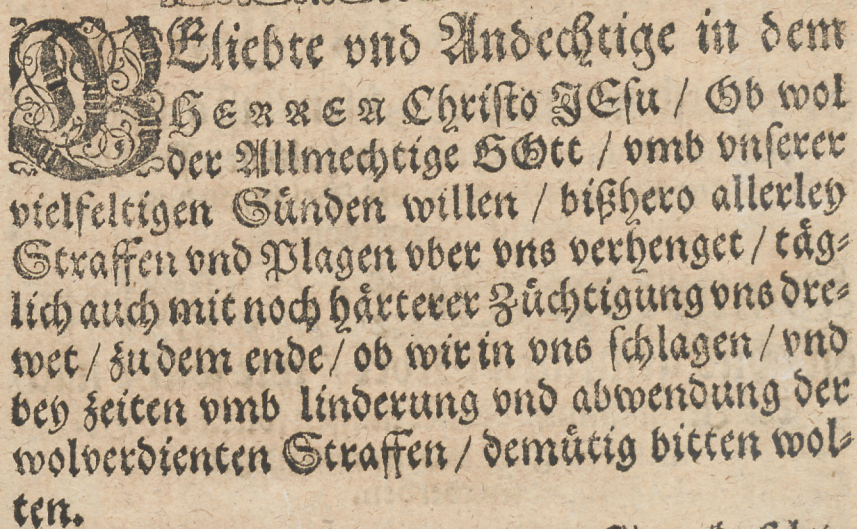 GEliebte vnd Andechtige in dem
HERREN Christo JEsu / Ob wol
der Allmechtige GOtt / vmb vnserer
vielfeltigen Sünden willen / bißhero allerley
Straffen vnd Plagen vber vns verhenget / täg⸗
lich auch mit noch härterer Züchtigung vns dre⸗
wet / zu dem ende / ob wir in vns schlagen / vnd
bey zeiten vmb linderung vnd abwendung der
wolverdienten Straffen / demütig bitten wol⸗
ten.